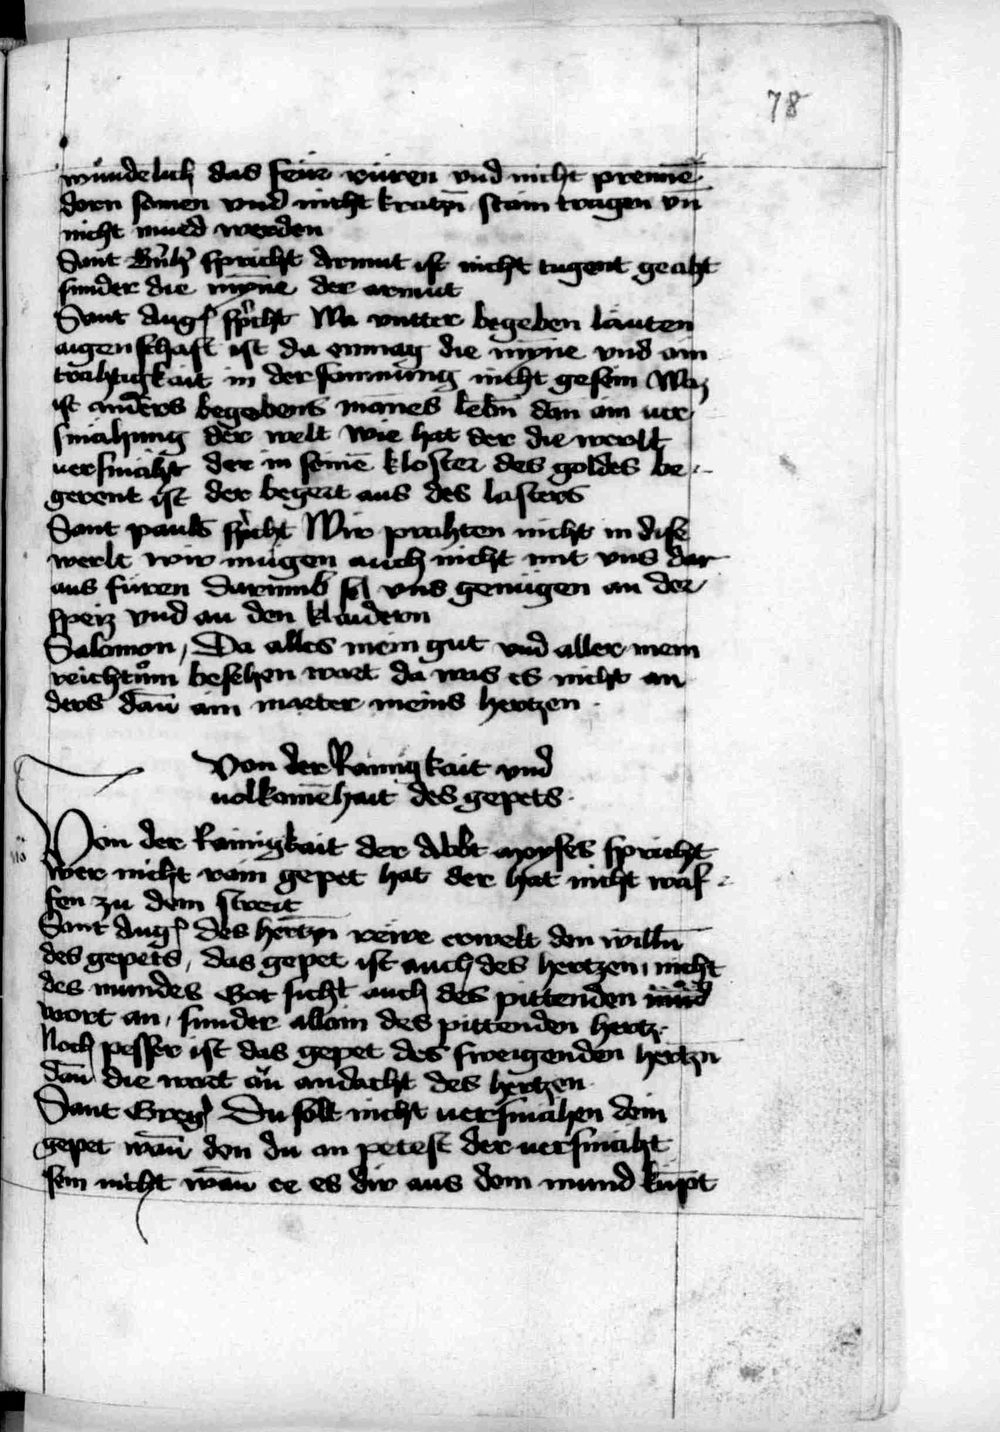 78
wunderlich das feur rüren vnd nicht prennē
dorn samen vnd nicht kratzn stain tragen vn̄
nicht mued werden
Sant Bernh spricht Armut ist nicht tugent geaht
sunder die mynne der armut
Sant Aug spricht Wa vntter begeben läuten
aigenschaft ist da enmag die myne vnd ain
trahtigkait in der samnung nicht gesein Waz
ist anders begebens manes lebn dan ain uer
smahung der welt Wie hat der die werlt
uersmaht der in seinē kloster des goldes be
gerent ist der begert aus des lasters
Sant pauls spricht Wir prahten nicht in dise
werlt wir mügen auch nicht mit vns dar
aus füren Darumb sol vns genügen an der
speiz vnd an den klaidern
Salomon, Da alles mein gut vnd aller mein
reichtům besehen wart da was es nicht an
ders dan̄ ain marter meins hertzen
Von der Rainigkait vnd
uolkomēhait des gepets
Von der Rainigkait der Abbt moyses spricht
Wer nicht rain gepet hat der hat nicht waf
fen zu dem streit
Sant Aug des hertzn rewe erwelt den willn
des gepets, das gepet ist auch des hertzen, nicht
des mundes Got sicht auch des pittenden
wort an, sunder allain des pittenden hertz
Noch pesser ist das gepet des sweigenden hertzn
dan̄ die wort an andacht des hertzen
Sant Greg Du solt nicht uersmahen dein
gepet wan̄ den du an petest der uersmaht
sein nicht wan̄ ee es dir aus dem mund kumpt